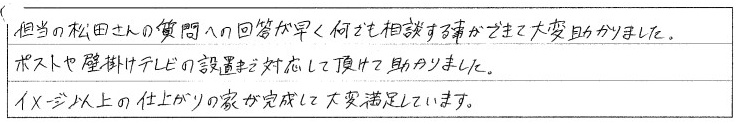 担当の松田さんの質問への回答が早く何でも相談する事ができて大変助かりました。
ポストや壁掛けテレビの設置まで対応して頂けて助かりました。
イメージ以上の仕上がりの家が完成して大変満足しています。